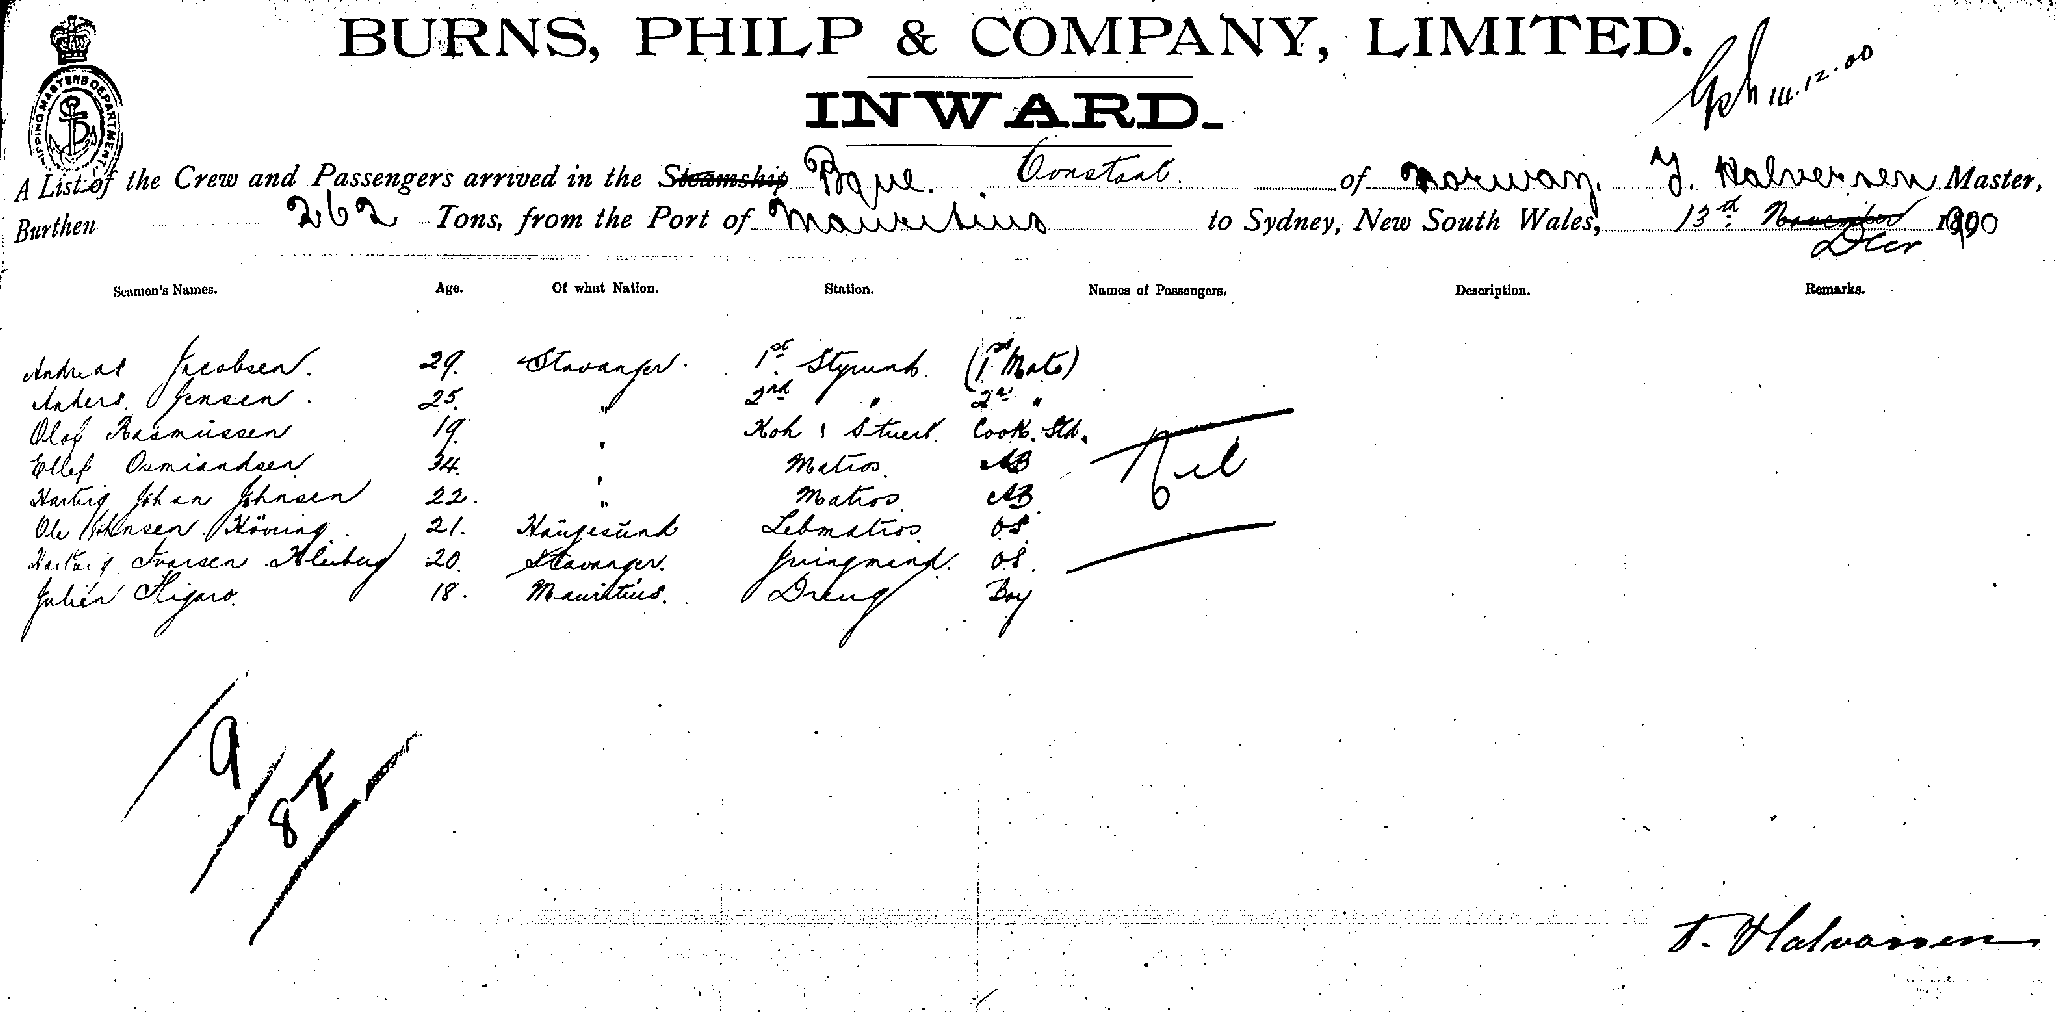 BURNS, PHILP & COMPANY, LIMITED.
14.12.00
INWARD.
SHIPPING MASTERS DEPARTMENT
A List of the Crew and Passengers arrived in the Steamship Bque. Constant. of Norway. Halversen Master,
Burthen 262 Tons, from the Port of Mauritius to Sydney, New South Wales, 13th November Decr 1900
Seamen's Names. Age. Of what Nation. Station. Names of Passengers. Description. Remarks.
Andreas Jacobsen. 29. Stavanger. 1st Styrmd. (1st Mate)
Anders Jensen. 25. " 2nd " 2nd "
Olaf Rasmussen 19. " Kok & Stuert. Cook. Std.
Ellef Osmundsen 34. " Matros. AB
Hartvig Johan Johnsen 22. " Matros. AB
Nil
Ole Hansen 21. Haugesund Letmatros OS.
Hartvig Ivarsen 20. Stavanger. Jungmand. OS.
Julien Figaro. 18. Mauritius. Dreng Boy
9
8 F
T. Halvorsen